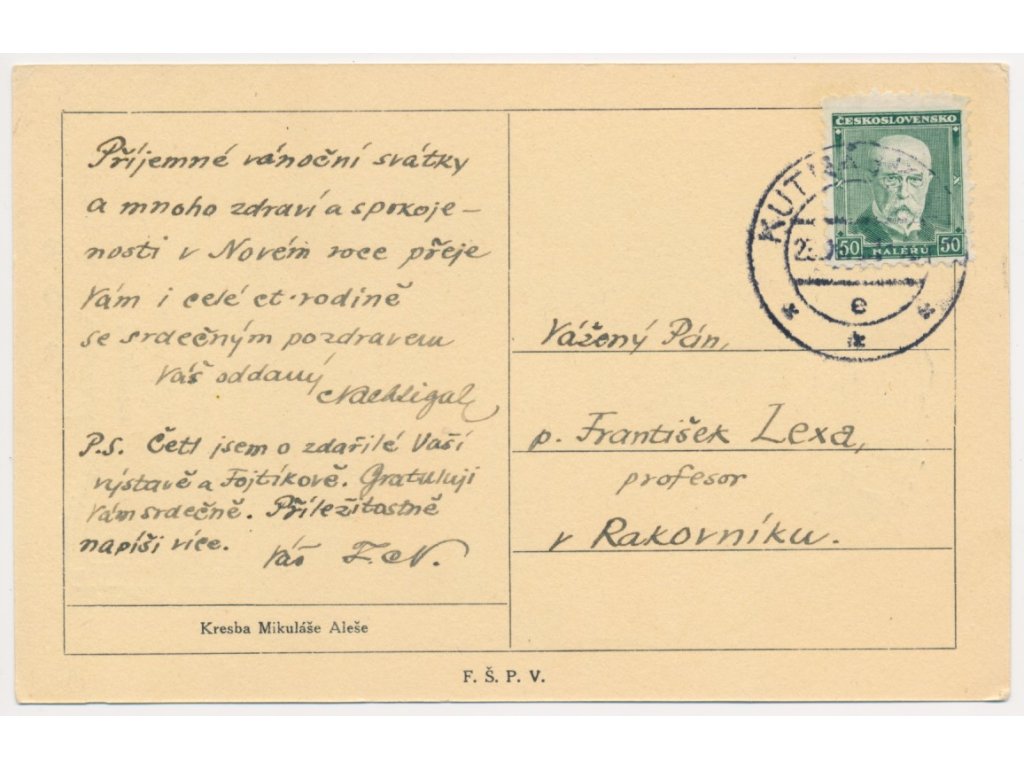 Příjemné vánoční svátky
a mnoho zdraví a spokoje-
nosti v Novém roce přeje
Vám i celé ct. rodině
se srdečným pozdravem
Váš oddaný
Nachtigal
P.S. Četl jsem o zdařilé Vaší
výstavě a Fojtíkově. Gratuluji
Vám srdečně. Příležitostně
napíši více.
Váš F. N.
Kresba Mikuláše Aleše
F. Š. P. V.
ČESKOSLOVENSKO
50 HALÉŘŮ 50
KUTNÁ
e
Vážený Pán,
p. František Lexa,
profesor
v Rakovníku.